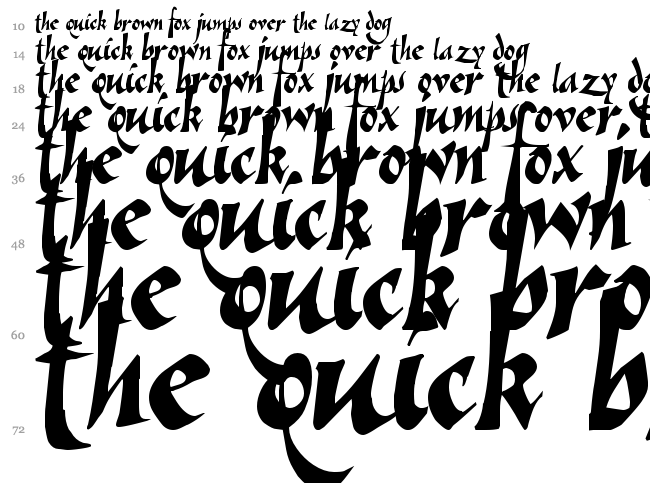 10 the quick brown fox jumps over the lazy dog
14 the quick brown fox jumps over the lazy dog
18 the quick brown fox jumps over the lazy do
24 the quick brown fox jumps over t
36 the quick brown fox ju
48 the quick brown
60 the quick bro
72 the quick b